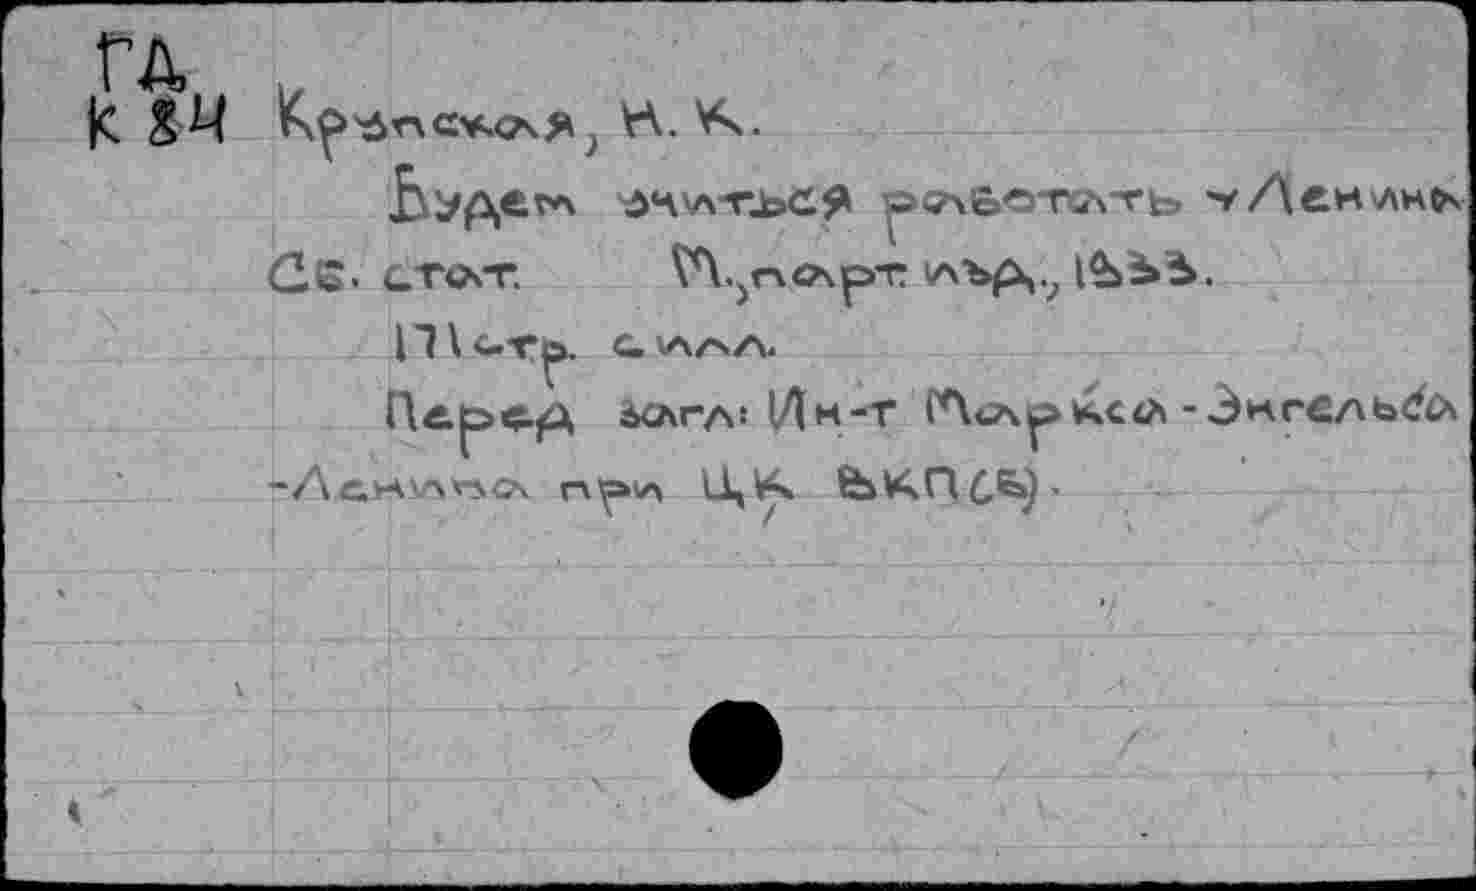 ГД
К 84 Крупская, Н. К.
Будем учиться работать у Ленина
Сб. стат. М., парт. изд., 1933.
171 стр. с илл.
Перед загл: Ин-т Маркса-Энгельса
-Ленина при ЦК ВКП(б).